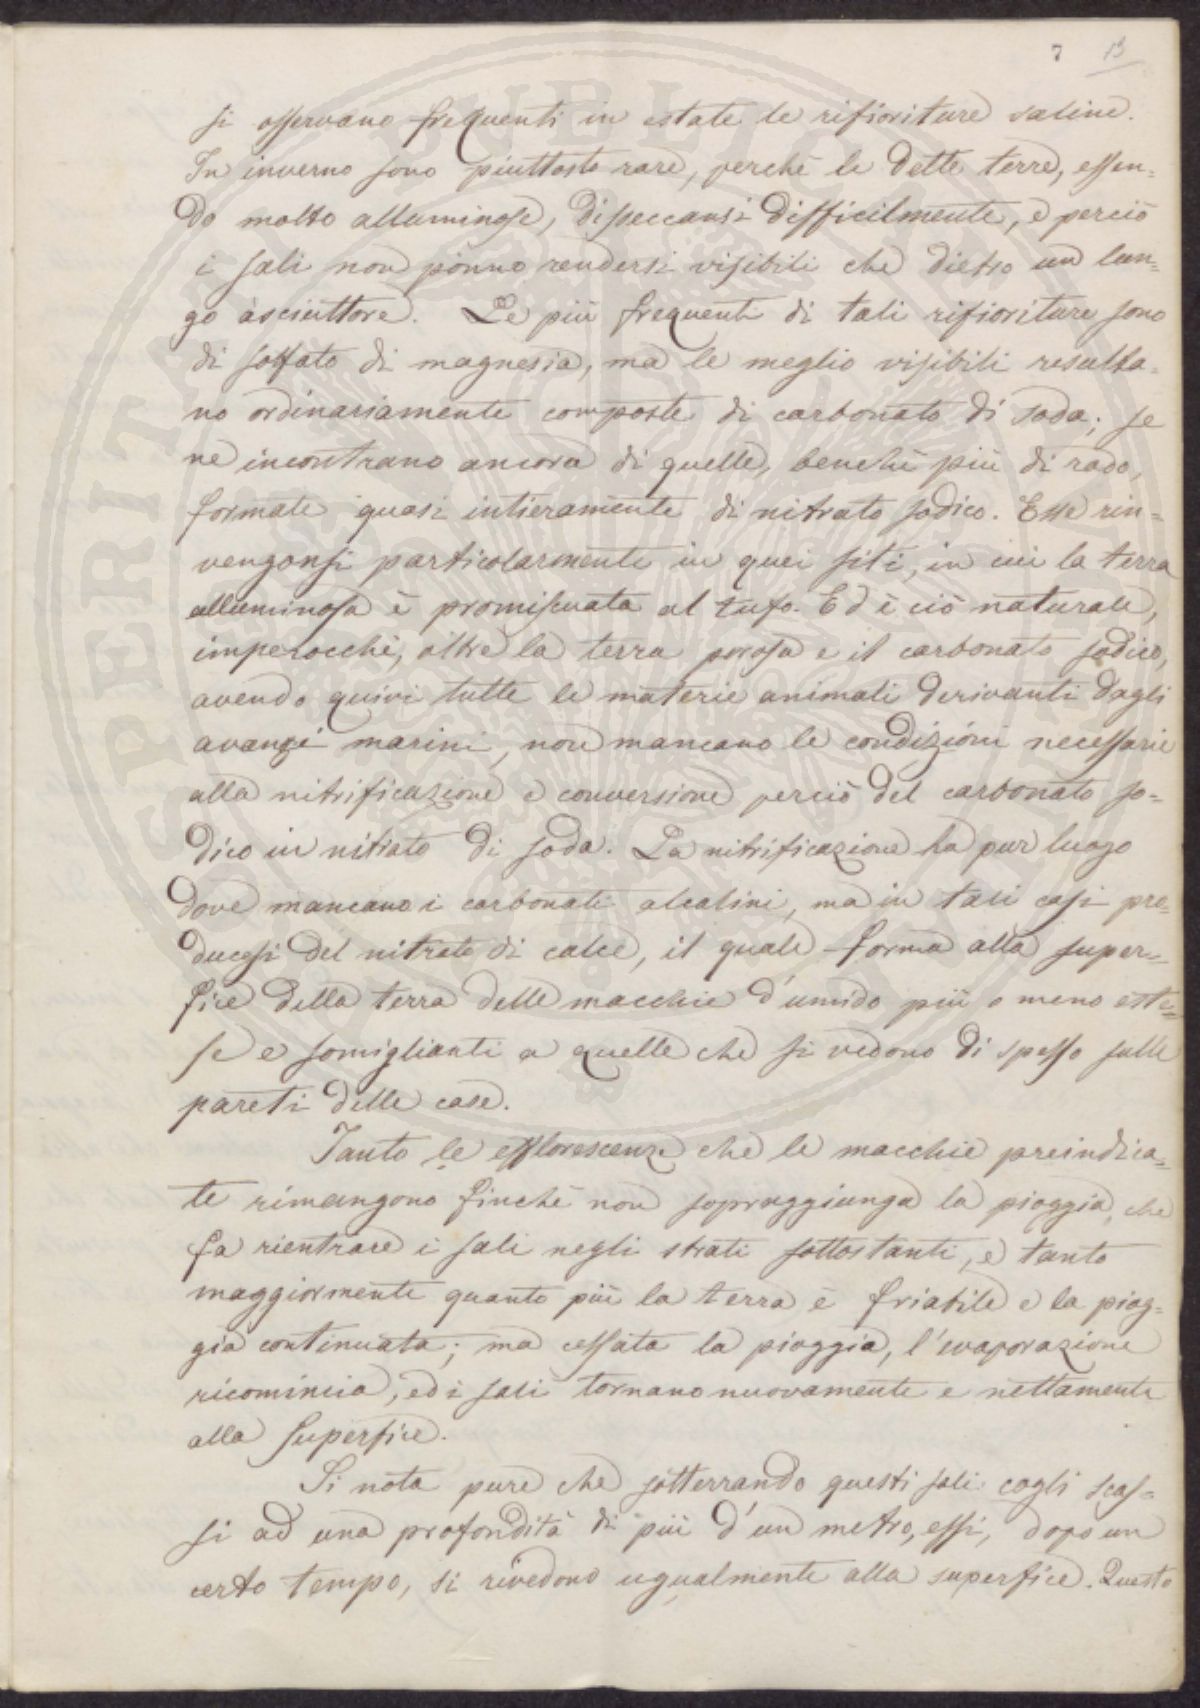 7 13
si osservano frequenti in estate le rifioriture saline.
In inverno sono piuttosto rare, perchè le dette terre, essen=
do molto alluminose, disseccansi difficilmente, e perciò
i sali non pònno rendersi visibili che dietro un lun=
go asciuttore. Le più frequenti di tali rifioriture sono
di solfato di magnesia, ma le meglio visibili resulta=
no ordinariamente composte di carbonato di soda; se
ne incontrano ancora di quelle, benchè più di rado,
formate quasi intieramente di nitrato sodico. Esse rin=
vengonsi particolarmente in quei siti, in cui la terra
alluminosa è promiscuata al tufo. Ed è ciò naturale,
imperocchè, oltre la terra porosa e il carbonato sodico,
avendo quivi tutte le materie animali derivanti dagli
avanzi marini, non mancano le condizioni necessarie
alla nitrificazione e conversione perciò del carbonato so=
dico in nitrato di soda. La nitrificazione ha pur luogo
dove mancano i carbonati alcalini, ma in tali casi pro=
ducesi del nitrato di calce, il quale forma alla super=
fice della terra delle macchie d'umido più o meno este=
se e somiglianti a quelle che si vedono di spesso sulle
pareti delle case.
Tanto le efflorescenze che le macchie preindica=
te rimangono finchè non sopraggiunga la pioggia, che
fa rientrare i sali negli strati sottostanti, e tanto
maggiormente quanto più la terra è friabile e la piog=
gia continuata; ma cessata la pioggia, l'evaporazione
ricomincia, ed i sali tornano nuovamente e nettamente
alla superfice.
Si nota pure che sotterrando questi sali cogli scas=
si ad una profondità di più d'un metro, essi, dopo un
certo tempo, si rivedono ugualmente alla superfice. Questo
COSPERITÀ PUBLICA